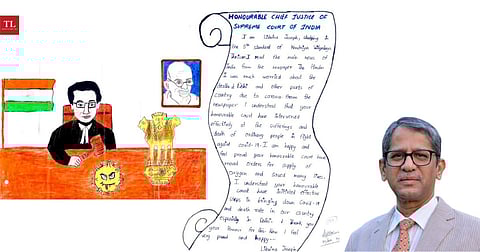 TL
HONOURABLE CHIEF JUSTICE OF
SUPREME COURT OF INDIA
I am Lidwina Joseph, studying in
the 5th standard of Kendriya Vidyalaya
Thrissur. I read the main news of
India from the newspaper The Hindu
I was much worried about the
deaths in Delhi and other parts of
country due to corona from the
newspaper I understand that your
honourable court have intervened
effectively at the sufferings and
death of ordinary people in fight
against covid-19. I am happy and
feel proud your honourable court have
moved orders for supply of
oxygen and saved many lives.
I understand your honourable
court have initiated effective
steps in bringing down Covid-19
and death rate in our country
especially in Delhi. I thank you
your Honour for this. Now I feel
very proud and happy.
Lidwina Joseph